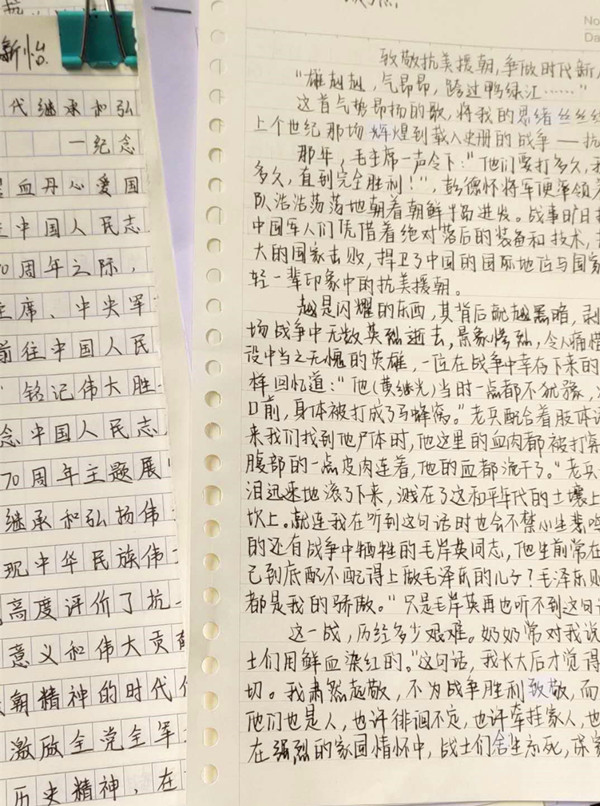 新怡
代继承和弘
一纪念
血丹心爱国
中国人民志
0周年之际，
主席、中央军
前往中国人民
铭记伟大胜
念中国人民志
70周年主题展
继承和弘扬伟
现中华民族伟
高度评价了抗
意义和伟大贡献
朝精神的时代
激励全党全军
历史精神，在
No
Da
致敬抗美援朝，争做时代新
“雄赳赳，气昂昂，跨过鸭绿江……”
这首气势昂扬的歌，将我的思绪丝丝
上个世纪那场辉煌到载入史册的战争——抗
那年，毛主席一声令下：“他们要打多久，我
多久，直到完全胜利！”，彭德怀将军便率领
队浩浩荡荡地朝着朝鲜半岛进发。战事旷日
中国军人们凭借着绝对落后的装备和技术，
大的国家击败，捍卫了中国的国际地位与国家
轻一辈印象中的抗美援朝。
越是闪耀的东西，其背后就越黑暗，剥
场战争中无数英烈逝去，景象惨烈，令人痛惜
设中当之无愧的英雄，一位在战争中幸存下来的
样回忆道：“他(黄继光)当时一点都不犹豫，
口前，身体被打成了马蜂窝。”老兵配合着肢体
来我们找到他尸体时，他这里的血肉都被打
腹部的一点皮肉连着，他的血都流干了。”老兵
泪迅速地滚了下来，溅在了这和平年代的土壤上
坎上。就连我在听到这句话时也会不禁心生悲
的还有战争中牺牲的毛岸英同志，他生前常在
己到底配不配得上做毛泽东的儿子？毛泽东
都是我的骄傲。”只是毛岸英再也听不到这句
这一战，历经多少艰难。奶奶常对我说
士们用鲜血染红的。”这句话，我长大后才觉得
切。我肃然起敬，不为战争胜利致敬，而
他们也是人，也许徘徊不定，也许牵挂家人，也
在强烈的家国情怀中，战士们舍生忘死，保家